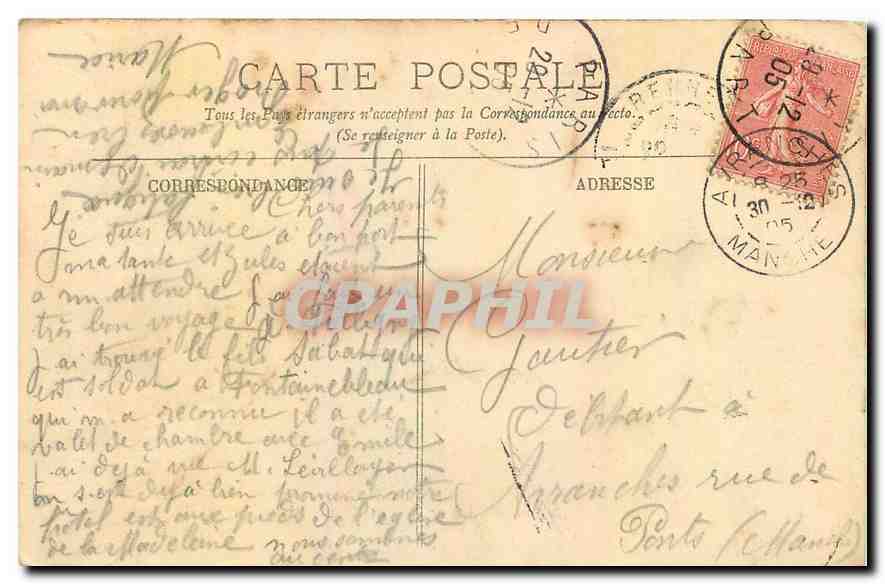 CARTE POSTALE
Tous les Pays étrangers n'acceptent pas la Correspondance au recto.
(Se renseigner à la Poste).
CORRESPONDANCE
ADRESSE
Chers parents
Je suis arrivee à bon port
ma tante et Jules etaient
a m attendre J ai
très bon voyage
J ai trouvé le fils Sabat qui
est soldat a Fontainebleau
qui m a reconnu il a ete
valet de chambre avec Emile
J ai deja vue M.
on s est deja bien promené notre
hotel est aux pieds de l'eglise
de la Madeleine nous sommes
au centre
Marie
Monsieur
Gautier
Debitant à
Avranches rue de
Ponts (Manche
PARIS
29 -12
PARIS
-12
05
RENNES
AVRANCHES
30 -12
05
MANCHE
CPAPHIL